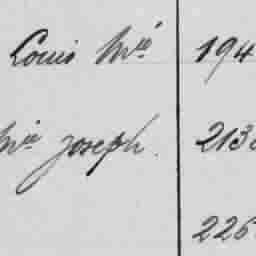 Louis Mie 194
Mie Joseph. 213
226